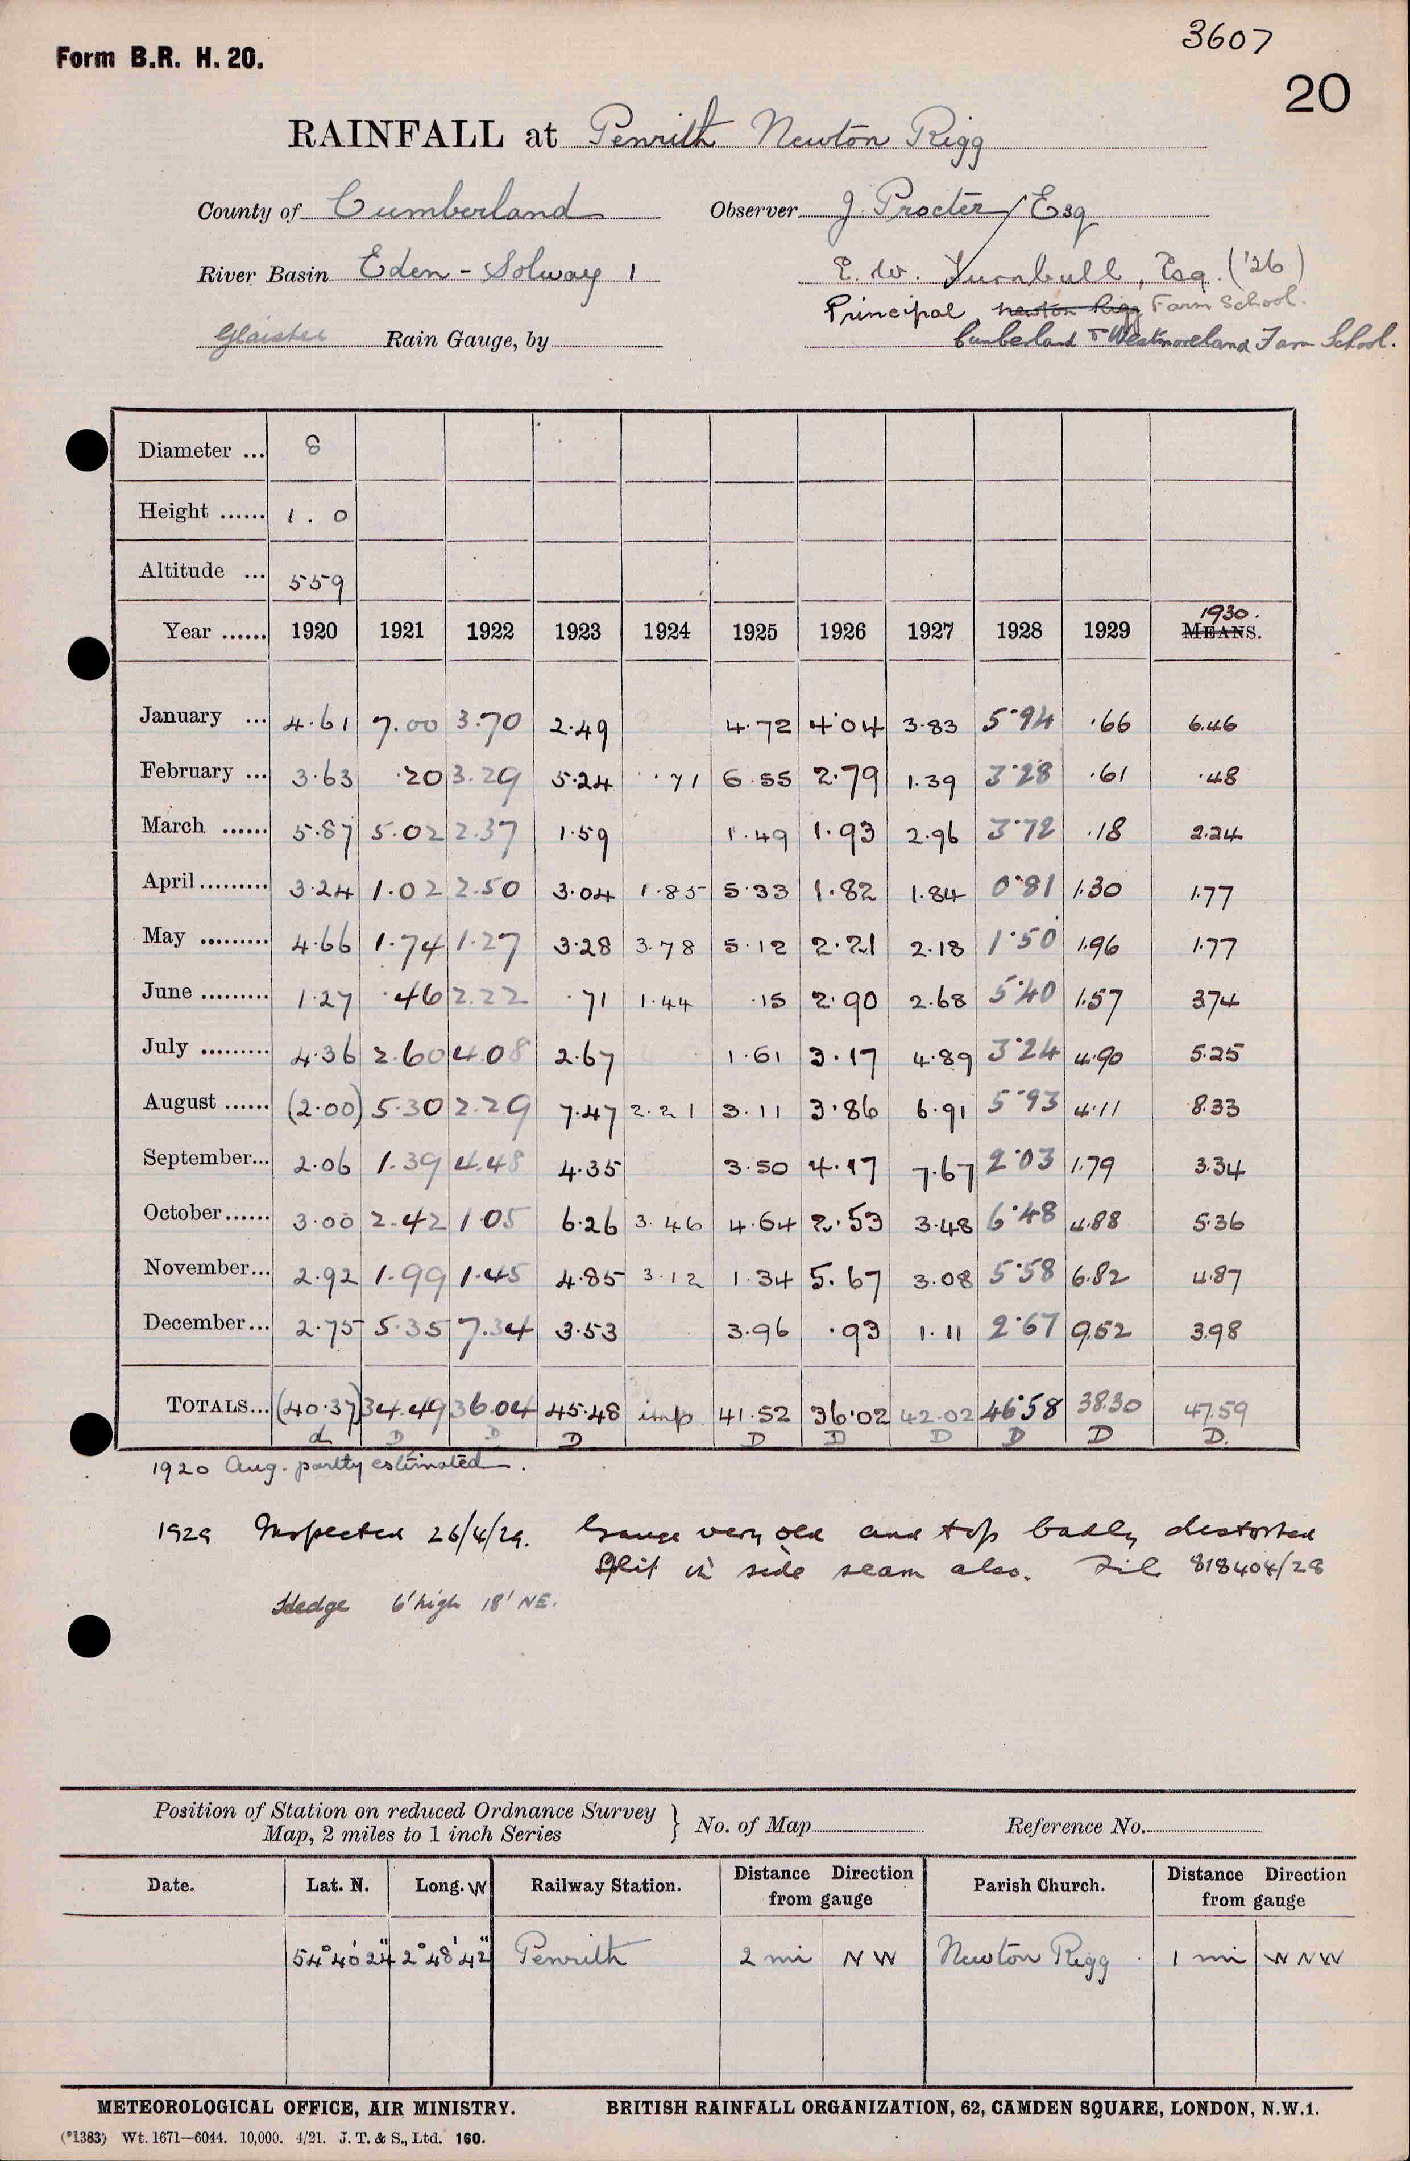 3607
Form B.R. H. 20.
20
RAINFALL at Penrith Newton Rigg
County of Cumberland Observer J. Procter Esq
River Basin Eden - Solway 1 E. W. Turnbull, Esq. ('26)
Principal Newton Rigg Farm School.
Glaisher Rain Gauge, by Cumberland & Westmoreland Farm School.
Diameter ... 8
Height ...... 1 . 0
Altitude ... 559
1930.
Year ...... 1920 1921 1922 1923 1924 1925 1926 1927 1928 1929 MEANS.
January ... 4.61 7.00 3.70 2.49 4.72 4.04 3.83 5.94 .66 6.46
February ... 3.63 .20 3.29 5.24 .71 6.55 2.79 1.39 3.28 .61 .48
March ...... 5.87 5.02 2.37 1.59 1.49 1.93 2.96 3.72 .18 2.24
April ......... 3.24 1.02 2.50 3.04 1.85 5.33 1.82 1.84 0.81 1.30 1.77
May ......... 4.66 1.74 1.27 3.28 3.78 5.12 2.21 2.13 1.50 1.96 1.77
June ......... 1.27 .46 2.22 .71 1.44 .15 2.90 2.68 5.40 1.57 3.74
July ......... 4.36 2.60 4.08 2.67 1.61 3.17 4.89 3.24 4.90 5.25
August ...... (2.00) 5.30 2.29 7.47 2.21 3.11 3.86 6.91 5.93 4.11 8.33
September... 2.06 1.39 4.48 4.35 3.50 4.17 7.67 2.03 1.79 3.34
October...... 3.00 2.42 1.05 6.26 3.46 4.64 2.53 3.48 6.48 4.88 5.36
November... 2.92 1.99 1.45 4.85 3.12 1.34 5.67 3.08 5.58 6.82 4.87
December... 2.75 5.35 7.34 3.53 3.96 .93 1.11 2.67 9.52 3.98
TOTALS... (40.37) 34.49 36.04 45.48 imp. 41.52 36.02 42.02 46.58 38.30 47.59
d D D D D D D D D D.
1920 Aug. partly estimated.
1929 Inspected 26/4/29. Gauge very old and top badly distorted
Split in side seam also. File 818404/28
Hedge 6' high 18' NE.
Position of Station on reduced Ordnance Survey
Map, 2 miles to 1 inch Series } No. of Map Reference No.
Date. Lat. N. Long. W Railway Station. Distance Direction from gauge Parish Church. Distance Direction from gauge
54° 40' 24" 2° 48' 42" Penrith 2 mi N W Newton Rigg 1 mi W N W
METEOROLOGICAL OFFICE, AIR MINISTRY. BRITISH RAINFALL ORGANIZATION, 62, CAMDEN SQUARE, LONDON, N.W.1.
(*1383) Wt. 1671—6044. 10,000. 4/21. J. T. & S., Ltd. 160.